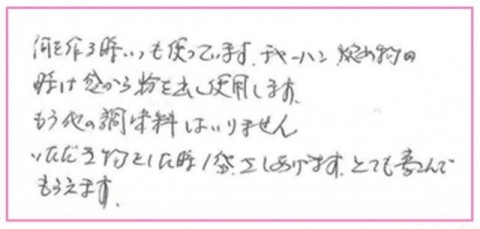 何を作る時いつも使っています。チャーハン 炒め物の
時は袋から粉を出し使用します。
もう他の調味料はいりません
いただき物をした時1袋さしあげます。とても喜んで
もらえます。